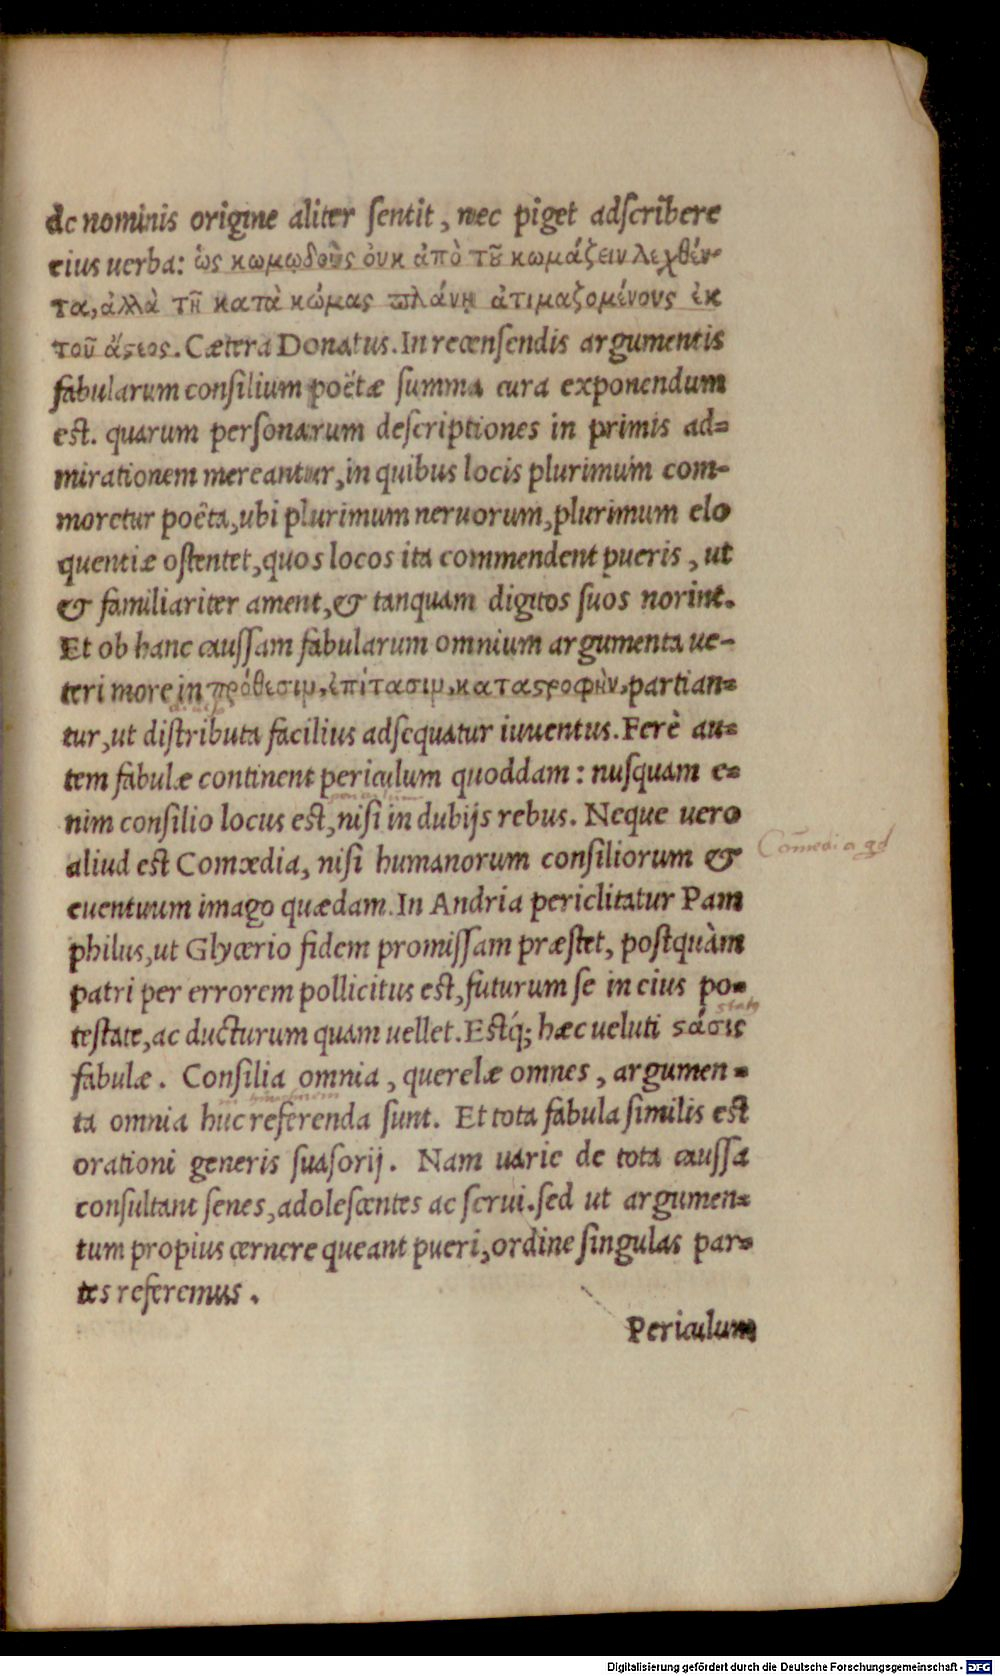 de nominis origine aliter sentit, nec piget adscribere
eius uerba: ὡς κωμῳδοὺς ὀυκ ἀπὸ τȣ͂ κωμάζειν λεχθέν-
τα, ἀλλὰ τῇ κατὰ κώμας πλάνῃ ἀτιμαζομένους ἐκ
τοῦ ἄϛεος. Cætera Donatus. In recensendis argumentis
fabularum consilium poëtæ summa cura exponendum
est. quarum personarum descriptiones in primis ad=
mirationem mereantur, in quibus locis plurimum com-
moretur poëta, ubi plurimum neruorum, plurimum elo
quentiæ ostentet, quos locos ita commendent pueris, ut
& familiariter ament, & tanquam digitos suos norint.
Et ob hanc caussam fabularum omnium argumenta ue-
teri more in πρόθεσιμ, ἐπίτασιμ, καταϛροφὴν, partian=
tur, ut distributa facilius adsequatur iuuentus. Ferè au=
tem fabulæ continent periculum quoddam: nusquam e=
nim consilio locus est, nisi in dubijs rebus. Neque uero
aliud est Comœdia, nisi humanorum consiliorum &
Comedia qd
euentuum imago quædam. In Andria periclitatur Pam
philus, ut Glycerio fidem promissam præstet, postquàm
patri per errorem pollicitus est, futurum se in eius po=
testate, ac ducturum quam uellet. Estq́; hæc ueluti ϛάσις
fabulæ. Consilia omnia, querelæ omnes, argumen=
ta omnia huc referenda sunt. Et tota fabula similis est
orationi generis suasorij. Nam uarie de tota caussa
consultant senes, adolescentes ac serui. sed ut argumen=
tum propius cernere queant pueri, ordine singulas par=
tes referemus.
Periculum
Digitalisierung gefördert durch die Deutsche Forschungsgemeinschaft - DFG